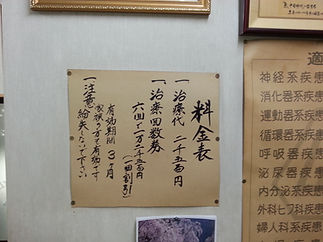 料金表
一 治療代 二千五百円
一 治療回数券
六回 一万二千五百円
(一回割引)
有効期間 3ヶ月
家族の方も有効です
一 注意 紛失しないで下さい
適
神経系疾患
消化器系疾患
運動器系疾患
循環器系疾患
呼吸器疾患
泌尿器疾患
内分泌系疾患
外科皮フ科疾患
婦人科系疾患